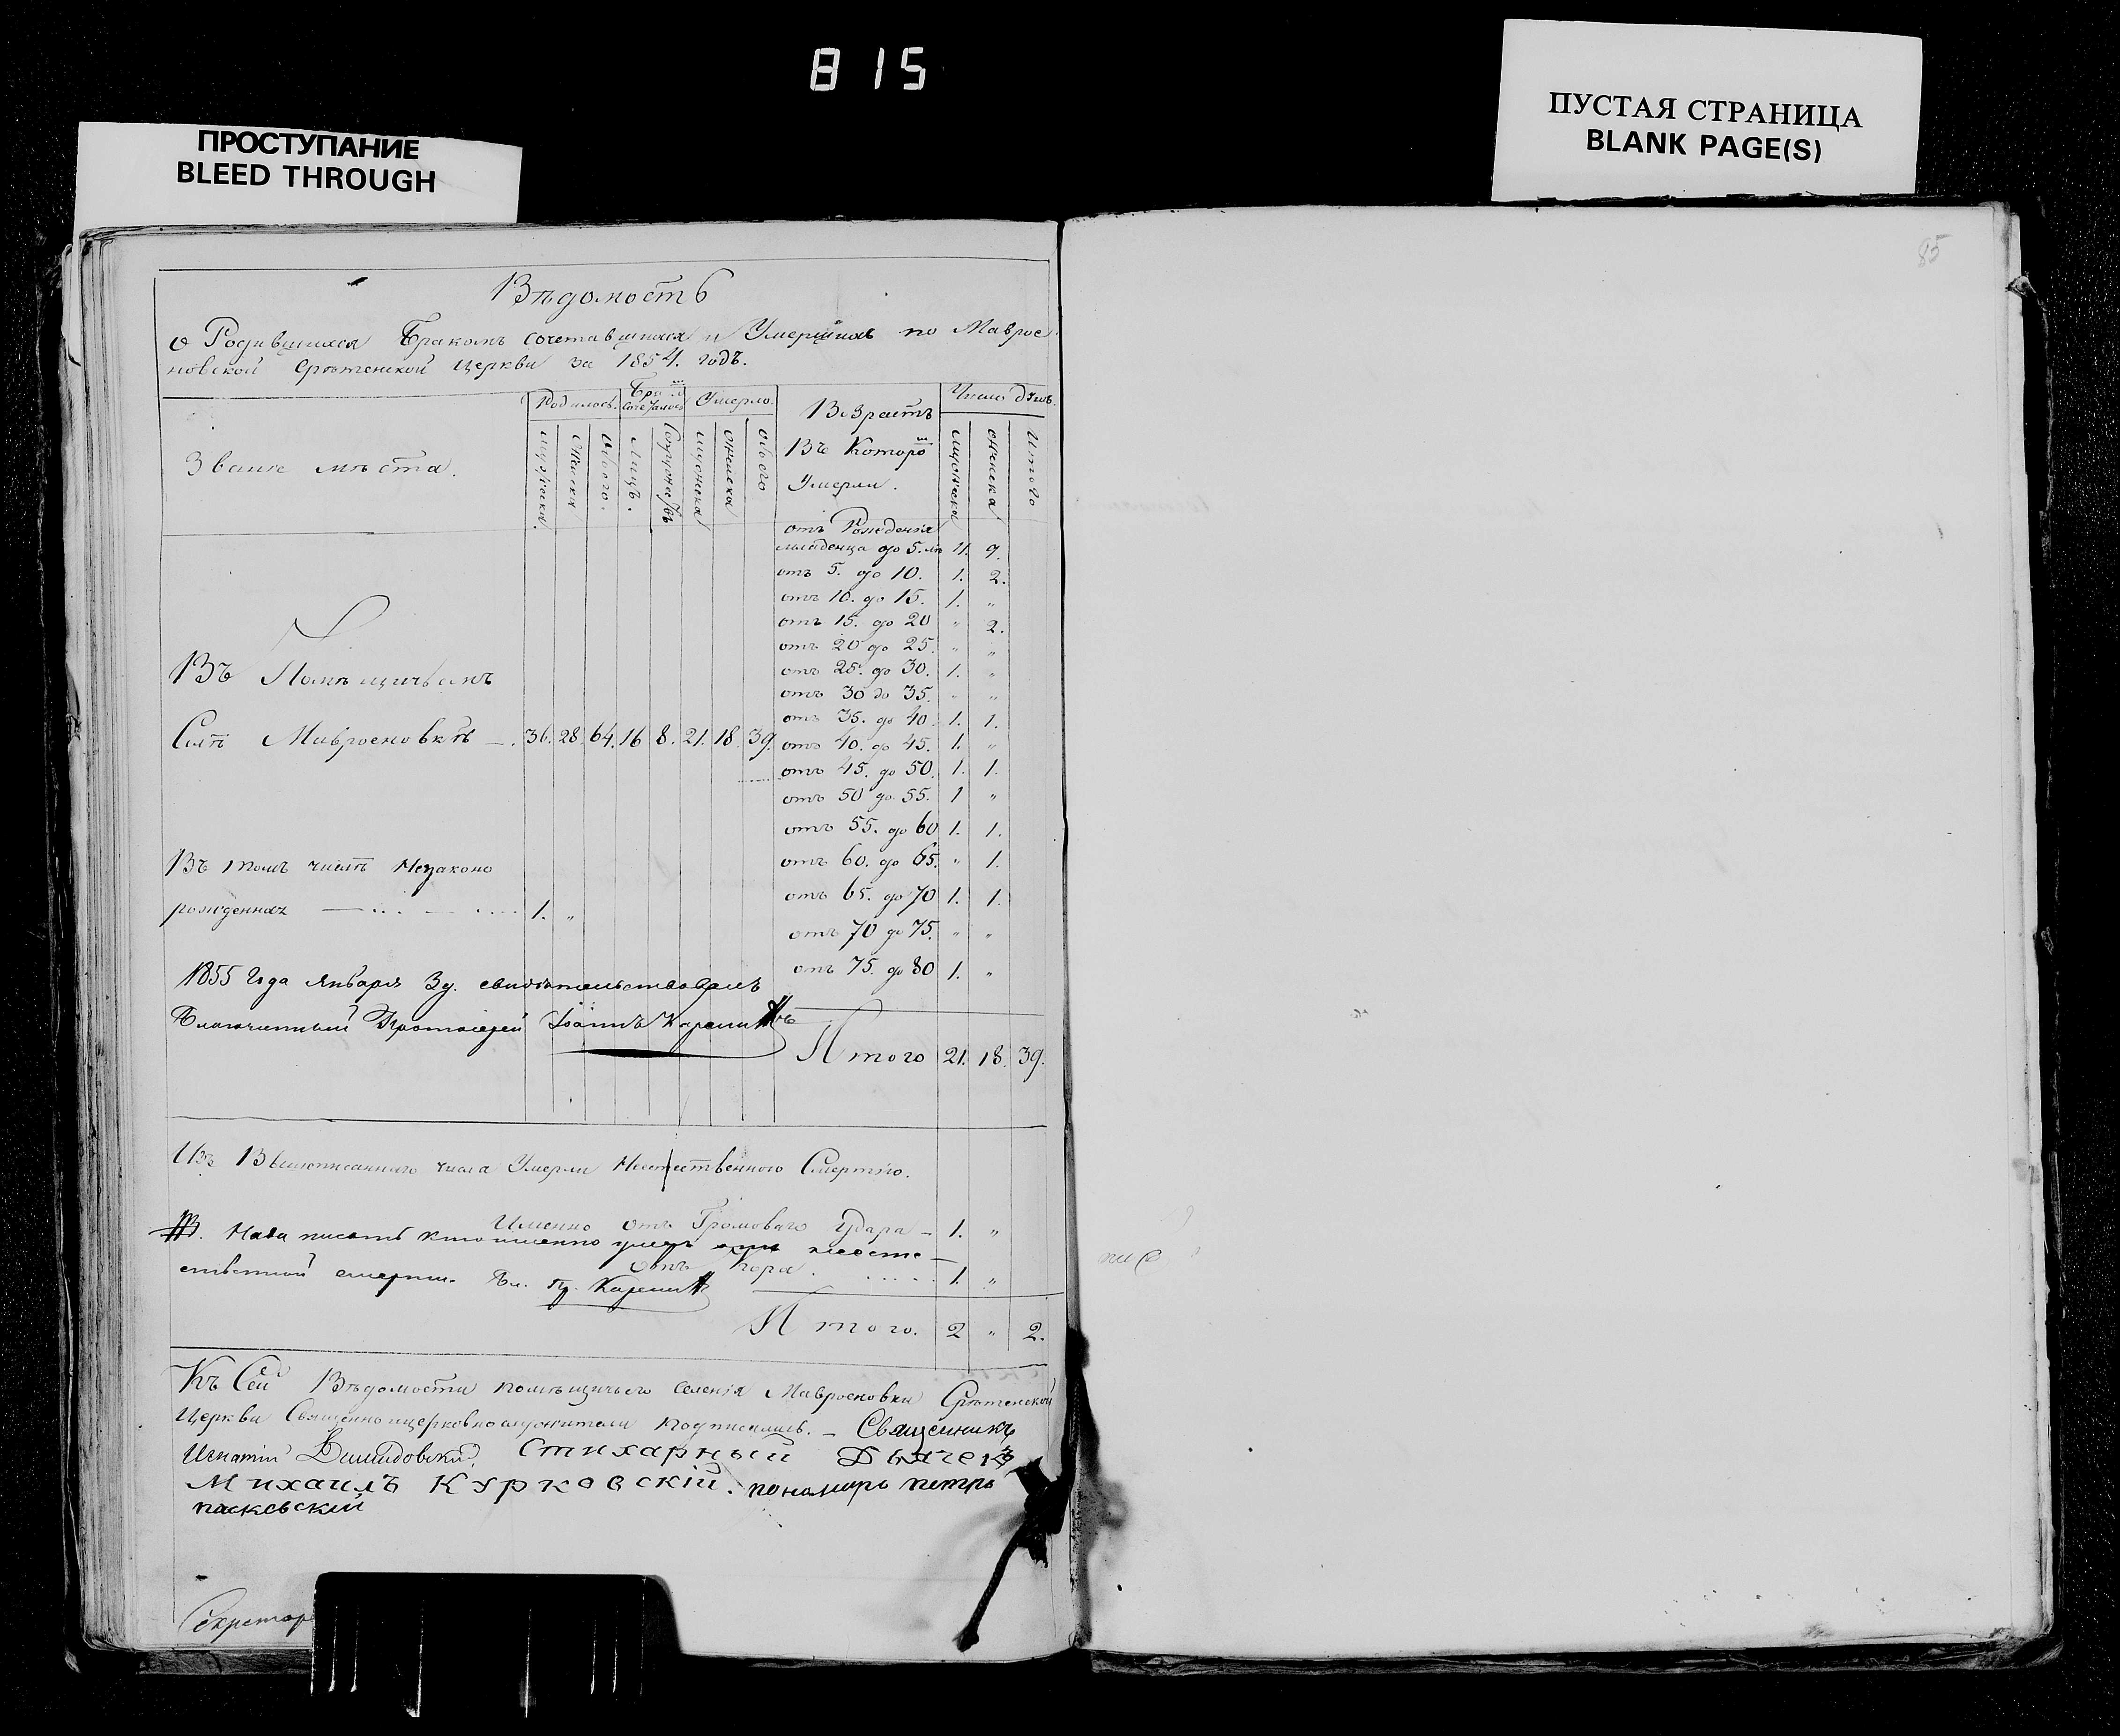 815
ПРОСТУПАНИЕ
BLEED THROUGH
ПУСТАЯ СТРАНИЦА
BLANK PAGE(S)
85
Вѣдомость
о Родившихся Бракомъ сочетавшихся и Умершихъ по Маврое
новской Срѣтенской Церкви за 1854. годъ.
Званiе мѣста.
Родилось.
Умерло.
Возрастъ
Въ Которомъ
Умерли.
Число душъ.
Мужеска.
Женска
Обоего.
Лицъ.
Супружествъ
Мужеска
Женска
Обоего
Мужеска
Женска
Итого
отъ Рожденiя
младенца до 5. лѣ 11. 9.
отъ 5. до 10. 1. 2.
отъ 10. до 15. 1. „
отъ 15. до 20 „ 2.
отъ 20 до 25. „ „
отъ 25. до 30. 1. „
отъ 30 до 35. „ „
отъ 35. до 40. 1. 1.
отъ 40. до 45. 1. „
отъ 45. до 50. 1. 1.
отъ 50 до 55. 1 „
отъ 55. до 60 1. 1.
отъ 60. до 65. „ 1.
отъ 65. до 70 1. 1.
отъ 70 до 75. „ „
отъ 75. до 80 1. „
Итого 21. 18. 39.
Въ Помѣщичьемъ
Селѣ Мавроеновкѣ 36. 28. 64. 16 8. 21. 18. 39.
Въ томъ числѣ Незаконо
рожденнах 1. „
1855 Года Января 3 д. свидѣтельствовалъ
Благочинный Протоiерей Iоаннъ
Изъ Вышеписаннаго числа Умерли Неестественного Смертiю.
Именно отъ Громоваго Удара 1. „
Нада писать кто именно умеръ неесте
ственной смертiю. Бл. Пр.
1. „
Итого. 2 „ 2.
Къ Сей Вѣдомости помѣщичьего селенiя Мавроеновки Срѣтенской
Церкви Священно ицерковнослужители подписались. – Священникъ
Игнатiй Стихарный Дьячекъ
Михаилъ Курковскiй. пономарь петръ
Секретарь